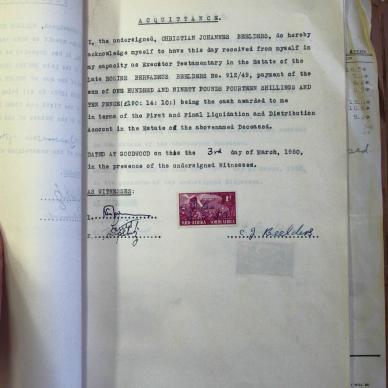 ACQUITTANCE.
I, the undersigned, CHRISTIAN JOHANNES BEELDERS, do hereby
acknowledge myself to have this day received from myself in
my capacity as Executor Testamentary in the Estate of the
late ROSINE BERNARDUS BEELDERS No. 912/49, payment of the
sum of ONE HUNDRED AND NINETY POUNDS FOURTEEN SHILLINGS AND
TEN PENCE(£190: 14: 10:) being the cash awarded to me
in terms of the First and Final Liquidation and Distribution
Account in the Estate of the abovenamed Deceased.
DATED AT GOODWOOD on this the 3rd day of March, 1950,
in the presence of the undersigned Witnesses.
AS WITNESSES:
1.
SUID-AFRIKA SOUTH AFRICA
C J Beelders